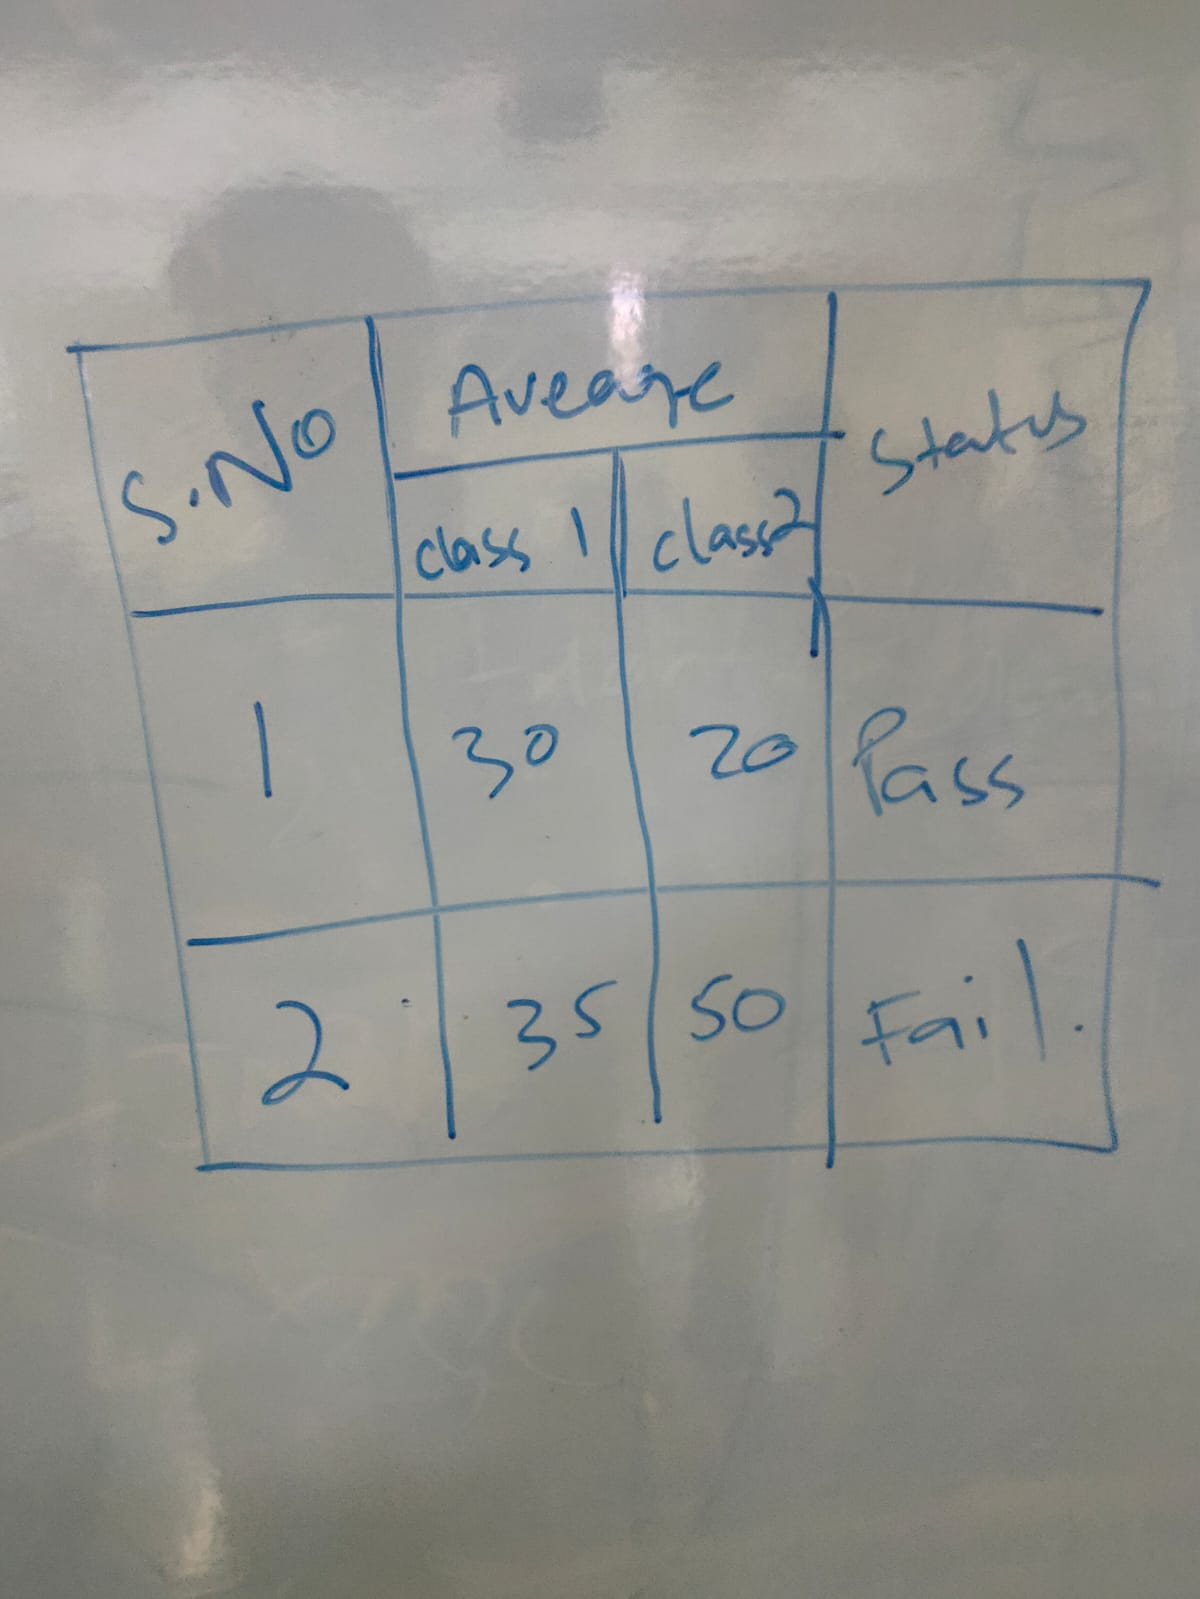 S.No Aveage Status
class 1 class2
1 30 20 Pass
2 35 50 Fail.